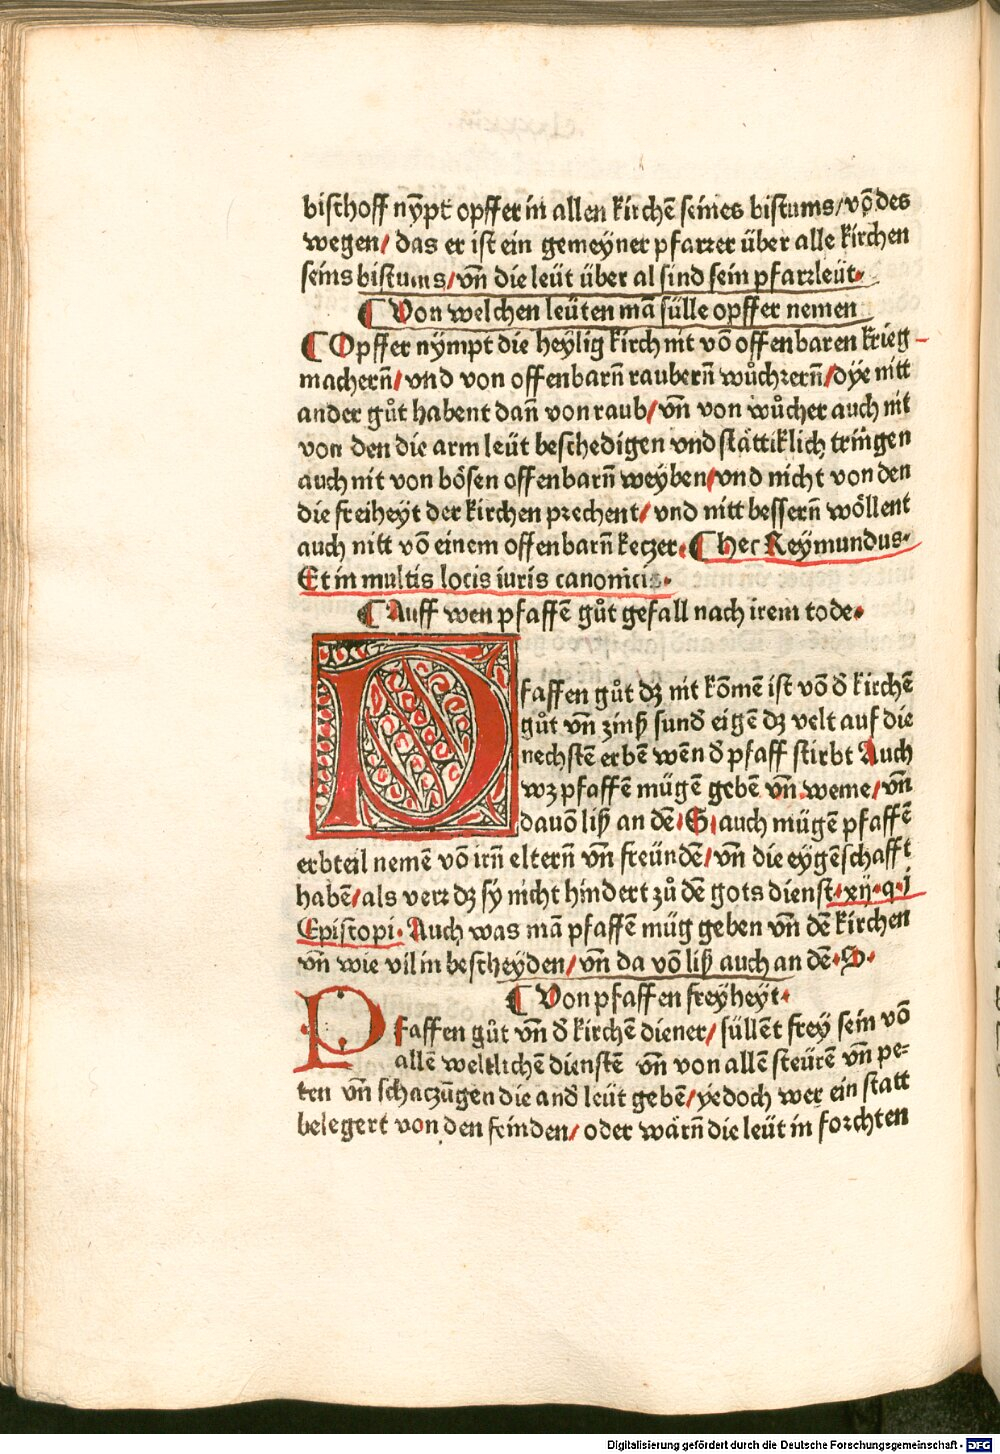 bischoff nÿpt opffer in allen kirchē seines bistums/ vō des
wegen/ das er ist ein gemeÿner pfarrer über alle kirchen
seins bistums/ vn̄ die leüt über al sind sein pfarrleüt·
¶ Von welchen leüten mā sülle opffer nemen
¶ Opffer nÿmpt die heÿlig kirch nit vō offenbaren krieg
machern̄/ vnd von offenbarn̄ raubern̄ wůchrern̄/ dÿe nitt
ander gůt habent dan̄ von raub/ vn̄ von wůcher auch nit
von den die arm leüt beschedigen vnd stättiklich tringen
auch nit von bösen offenbarn̄ weÿben/ vnd nicht von den
die freiheÿt der kirchen prechent/ vnd nitt bessern̄ wöllent
auch nitt vō einem offenbarn̄ keczer· ¶ hec Reÿmundus·
Et in multis locis iuris canonicis·
¶ Auff wen pfaffē gůt gefall nach irem tode·
Pfaffen gůt dz nit kōmē ist vō d̄ kirchē
gůt vn̄ zinß sund̄ eigē dz velt auf die
nechstē erbē wen̄ d̄ pfaff stirbt Auch
wz pfaffē mügē gebē vn̄ weme/ vn̄
dauō liß an dē· S· auch mügē pfaffē
erbteil nemē vō irn̄ eltern̄ vn̄ freündē/ vn̄ die eÿgēschafft
habē/ als verr dz sÿ nicht hindert zů dē gots dienst· xij· q· j
Episcopi· Auch was mā pfaffē müg geben vn̄ dē kirchen
vn̄ wie vil in bescheÿden/ vn̄ da vō liß auch an dē· S·
¶ Von pfaffen freÿheÿt·
Pfaffen gůt vn̄ d̄ kirchē diener/ süllēt frey sein vō
allē weltlichē dienstē vn̄ von allē steürē vn̄ pe=
ten vn̄ schaczūgen die and̄ leüt gebē/ ÿedoch wer ein statt
belegert von den feinden/ oder wärn̄ die leüt in forchten
Digitalisierung gefördert durch die Deutsche Forschungsgemeinschaft - DFG